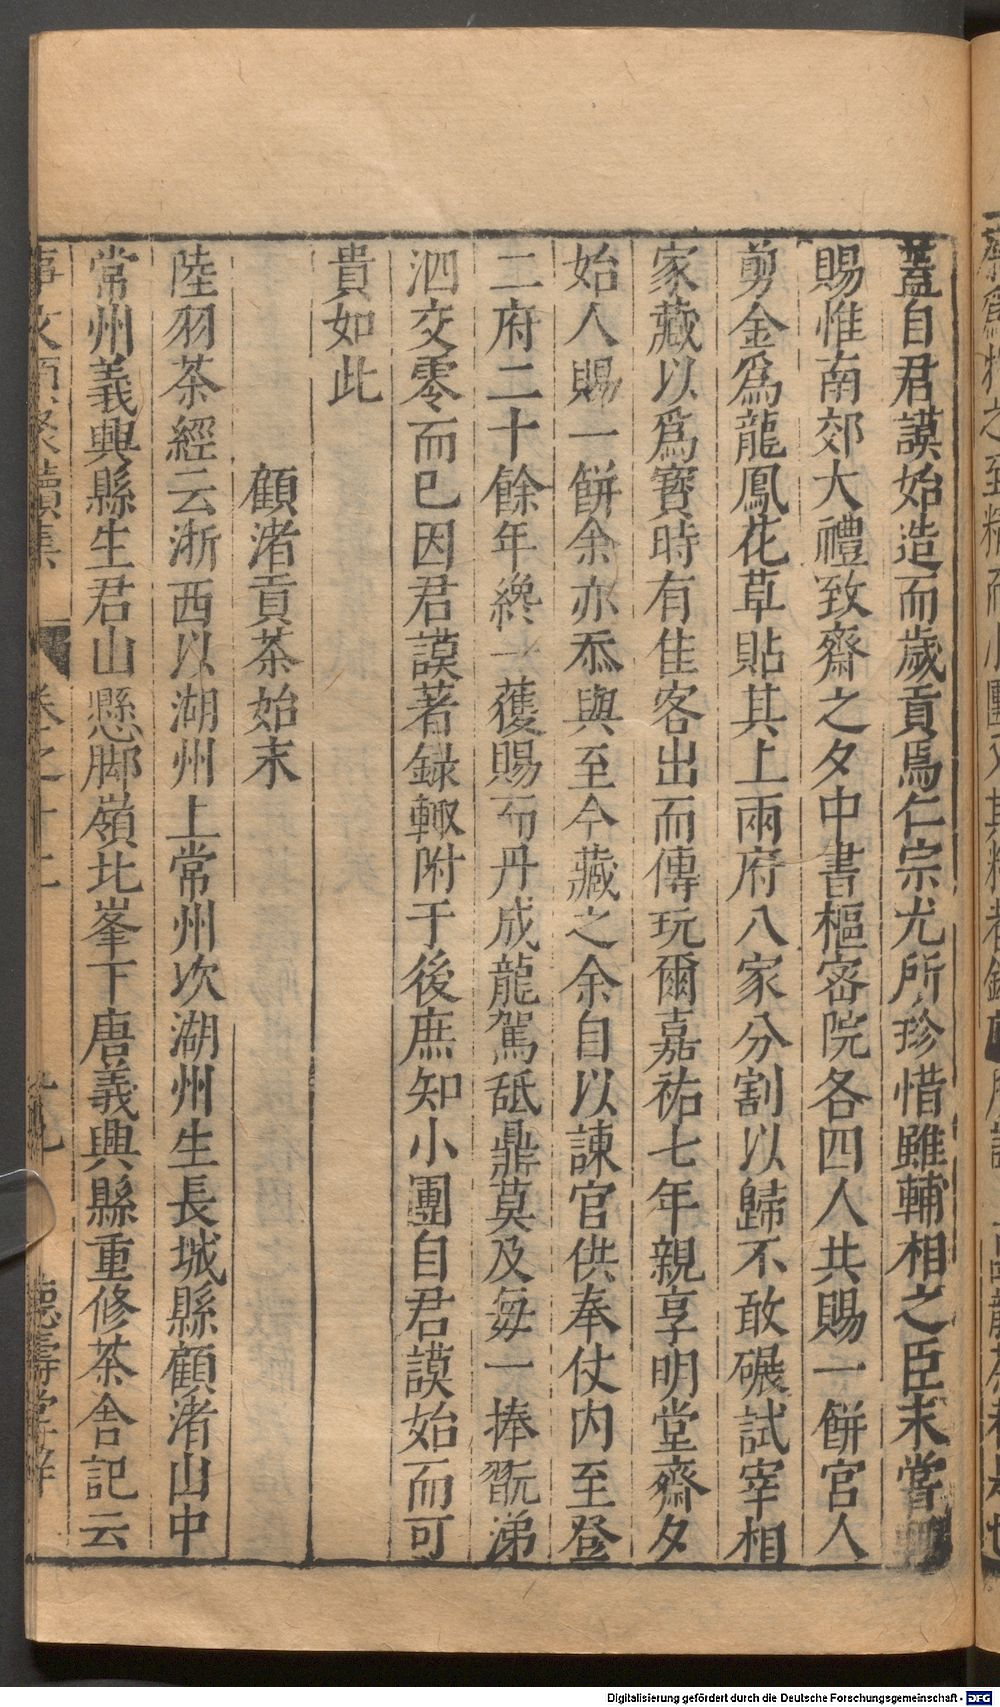 蓋自君謨始造而歲貢焉仁宗尤所珍惜雖輔相之臣未嘗輒
賜惟南郊大禮致齋之夕中書樞密院各四人共賜一餅官人
剪金爲龍鳳花草貼其上兩府八家分割以歸不敢碾試宰相
家藏以爲寳時有佳客出而傳玩爾嘉祐七年親享明堂齋夕
始人賜一餅余亦忝與至今藏之余自以諫官供奉仗内至登
二府二十餘年纔一獲賜而丹成龍駕舐鼎莫及每一捧翫涕
泗交零而已因君謨著録輙附于後庶知小團自君謨始而可
貴如此
顧渚貢茶始末
陸羽茶經云浙西以湖州上常州次湖州生長城縣顧渚山中
常州義興縣生君山懸脚嶺北峯下唐義興縣重修茶舍記云
事文類聚續集 卷之十二 德壽堂梓
Digitalisierung gefördert durch die Deutsche Forschungsgemeinschaft - DFG